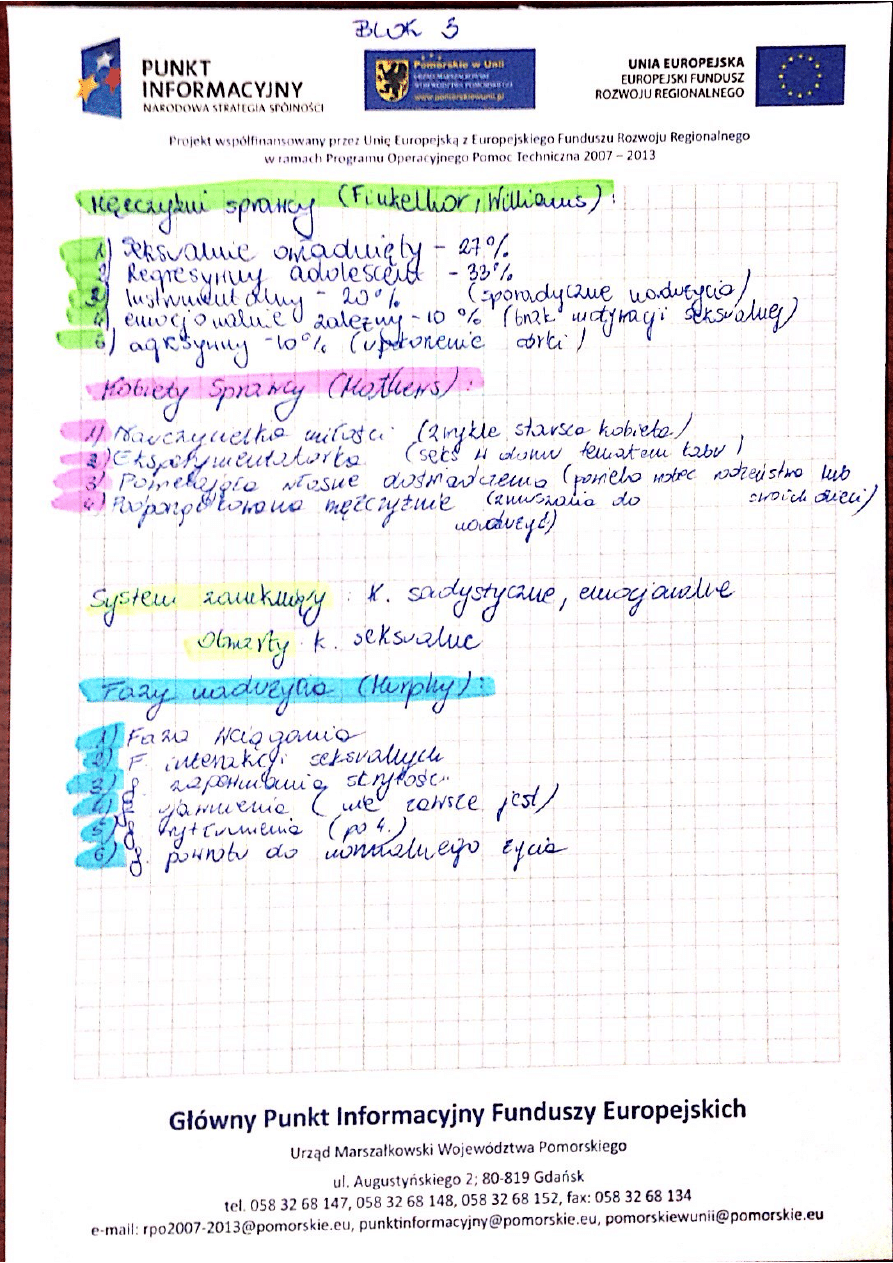 BLOK 3
PUNKT
INFORMACYJNY
NARODOWA STRATEGIA SPÓJNOŚCI
Pomorskie w Unii
URZĄD MARSZAŁKOWSKI
WOJEWÓDZTWA POMORSKIEGO
www.pomorskiewunii.pl
UNIA EUROPEJSKA
EUROPEJSKI FUNDUSZ
ROZWOJU REGIONALNEGO
Projekt współfinansowany przez Unię Europejską z Europejskiego Funduszu Rozwoju Regionalnego
w ramach Programu Operacyjnego Pomoc Techniczna 2007 – 2013
Mężczyźni sprawcy (Finkelhor, Williams):
1) Seksualnie owładnięty - 27%
2) Regresywny adolescent - 33%
3) Instrumentalny - 20% (sporadyczne nadużycia)
4) emocjonalnie zależny - 10 % (brak motywacji seksualnej)
5) agresywny - 10% (upokorzenie córki)
Kobiety Sprawcy (Mathews):
1) Nauczycielka miłości (zwykle starsza kobieta)
2) Eksperymentatorka (seks w domu tematem tabu)
3) Powielająca własne doświadczenia (powiela wobec rodzeństwa lub swoich dzieci)
4) Podporządkowana mężczyźnie (zmuszana do nadużyć)
System zamknięty: k. sadystyczne, emocjonalne
Otwarty k. seksualne
Fazy nadużycia (Murphy):
1) Faza wciągania
2) F. interakcji seksualnych
3) f. zapewniania skrytości
4) f. ujawnienia (nie zawsze jest)
5) f. wytłumienia (po 4.)
6) f. powrotu do normalnego życia
Główny Punkt Informacyjny Funduszy Europejskich
Urząd Marszałkowski Województwa Pomorskiego
ul. Augustyńskiego 2; 80-819 Gdańsk
tel. 058 32 68 147, 058 32 68 148, 058 32 68 152, fax: 058 32 68 134
e-mail: rpo2007-2013@pomorskie.eu, punktinformacyjny@pomorskie.eu, pomorskiewunii@pomorskie.eu